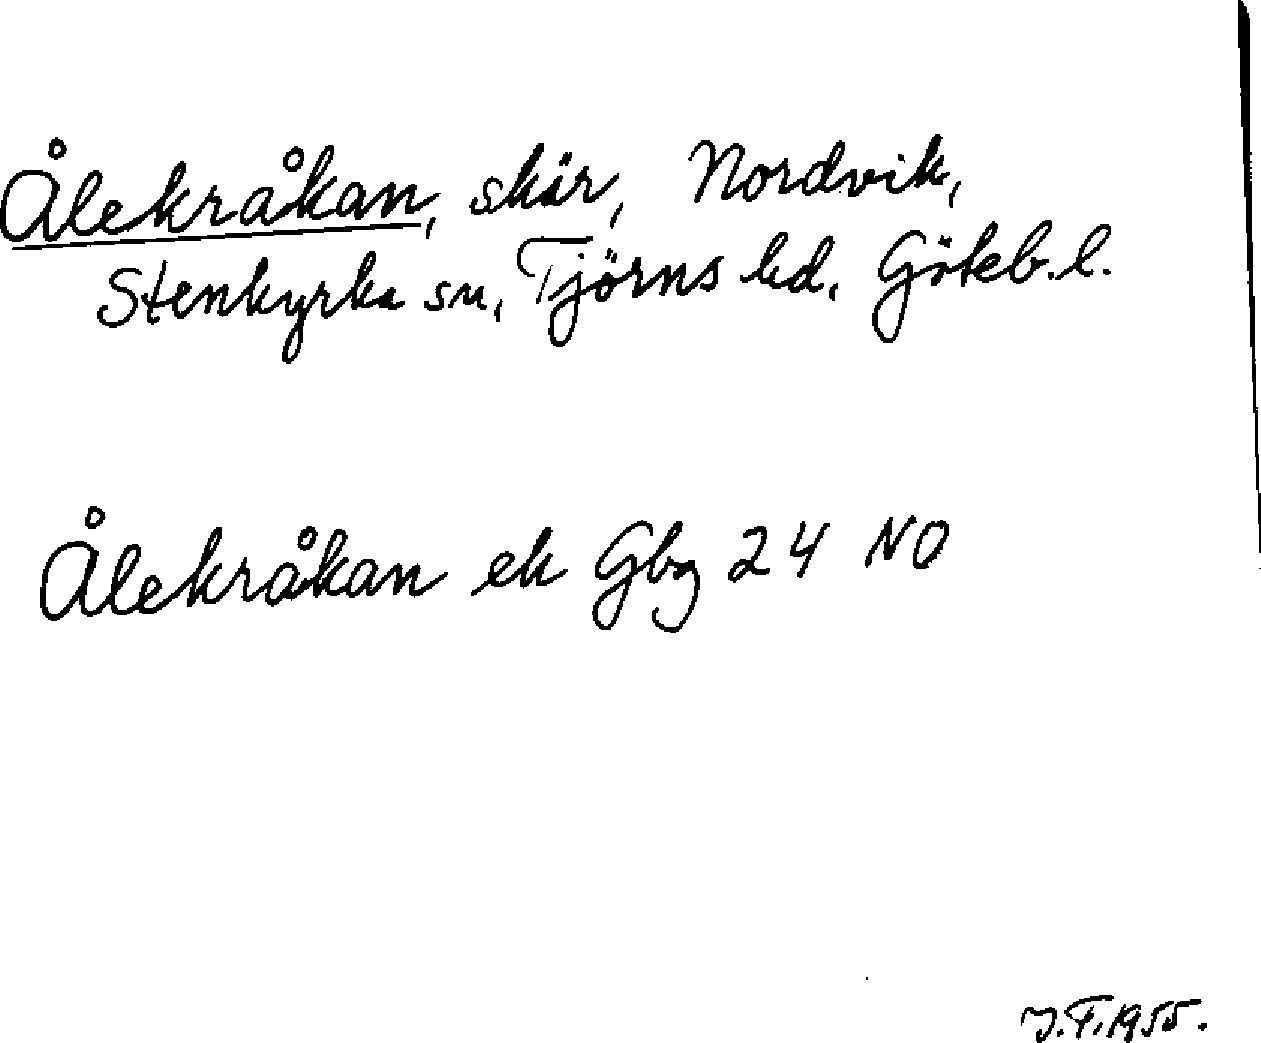 Ålekråkan, skär, Nordvik,
Stenkyrka sn, Tjörns hd, Göteb. l.
Ålekråkan ek Gbg 24 NO
J.F. 1955.